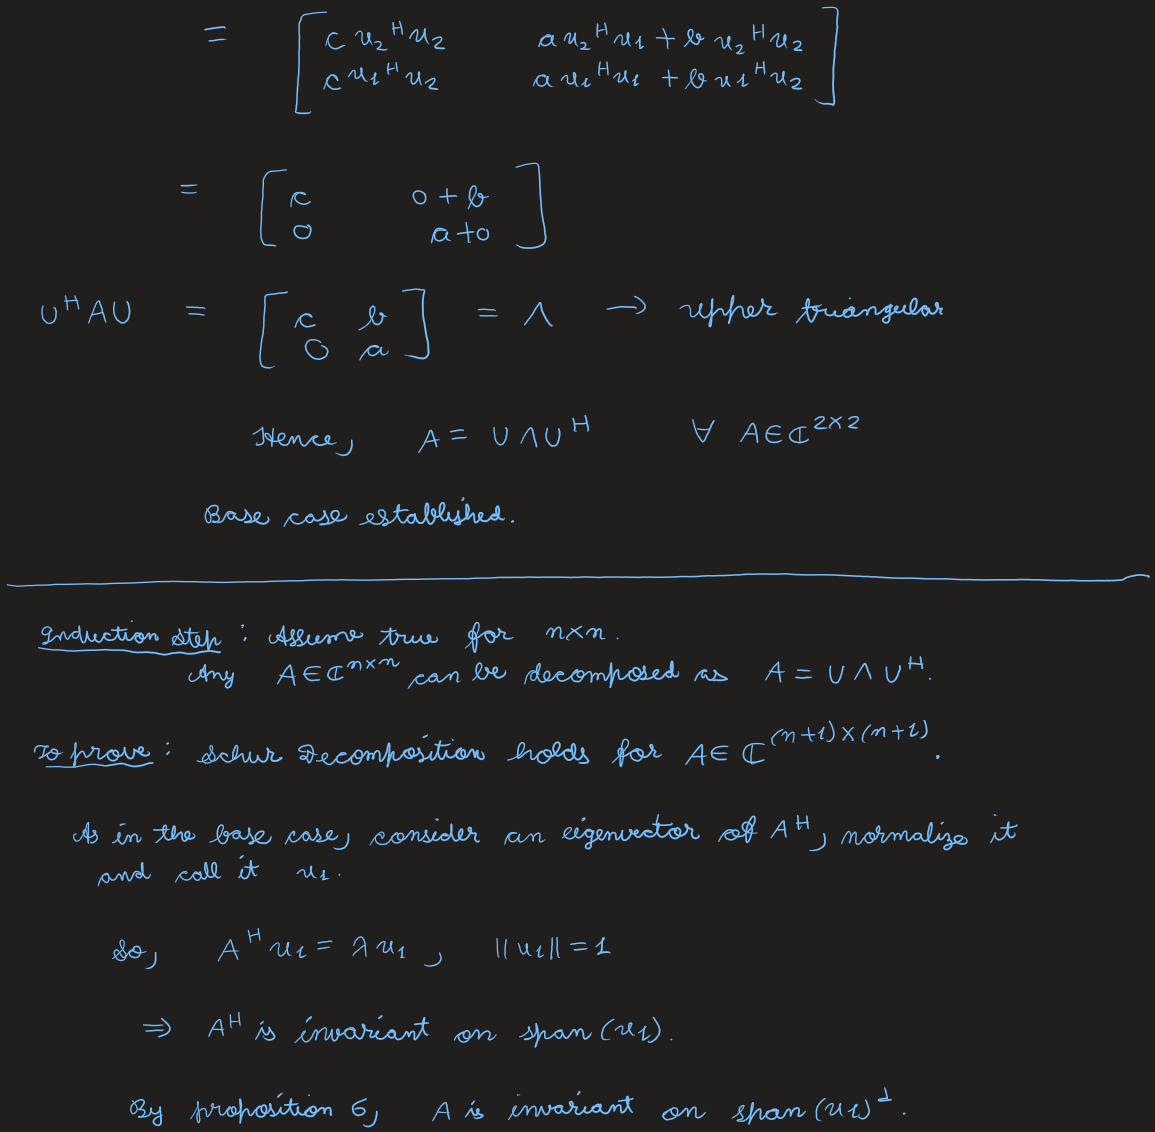 = [ c u₂ᴴu₂   a u₂ᴴu₁ + b u₂ᴴu₂
c u₁ᴴu₂   a u₁ᴴu₁ + b u₁ᴴu₂ ]
= [ c   0 + b
0   a + 0 ]
Uᴴ A U = [ c   b
0   a ] = Λ → upper triangular
Hence, A = U Λ Uᴴ ∀ A ∈ ℂ²ˣ²
Base case established.
Induction step : Assume true for n×n.
Any A ∈ ℂⁿˣⁿ can be decomposed as A = U Λ Uᴴ.
To prove : Schur Decomposition holds for A ∈ ℂ⁽ⁿ⁺¹⁾ˣ⁽ⁿ⁺¹⁾.
As in the base case, consider an eigenvector of Aᴴ, normalize it
and call it u₁.
So, Aᴴu₁ = λu₁, ||u₁|| = 1
⇒ Aᴴ is invariant on span(u₁).
By proposition 6, A is invariant on span(u₁)^⊥.